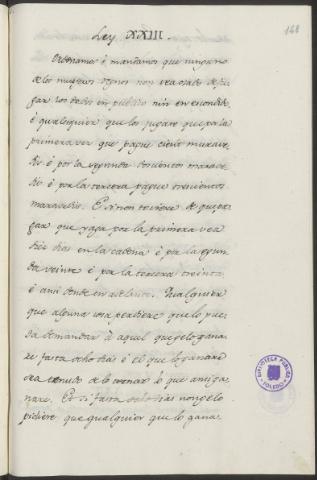 168
Ley XXIII.
Ordenamos é mandamos que ninguno
de los nuestros Regnos non sea osado de ju-
gar los dados en publico nin en escondido
é qualquier que los jugare que por la
primera vez que pague ciento marave-
dis é por la segunda doscientos marave-
dis é por la tercera pague trescientos
maravedis. E si non toviere de que pa-
gar que yaga por la primera vez
diez dias en la cadena é por la segun-
da veinte é por la tercera treinta
é ansi dende en adelante. Qualquier
que alguna cosa perdiere que lo pue-
da demandar á aquel que gelo gana-
re fasta ocho dias é el que lo ganare
sea tenudo de lo tornar lo que ansi ga-
nare. Et si fasta ocho dias non gelo
pidiere que qualquier que lo gana-
BIBLIOTECA PUBLICA
TOLEDO